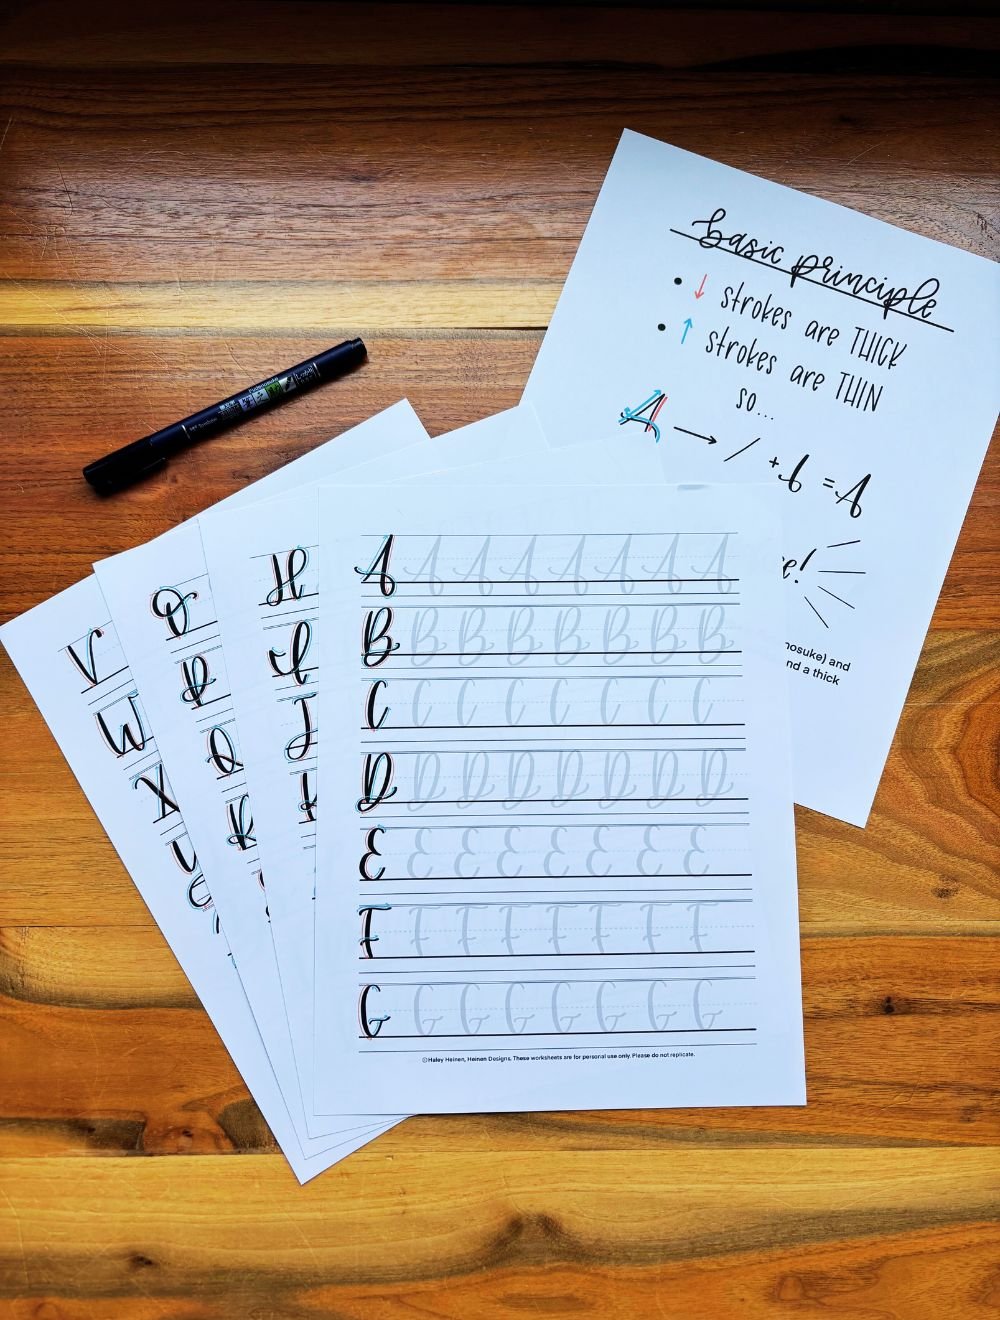 basic principle
• ↓ strokes are THICK
• ↑ strokes are THIN
so...
A → / + = A
e!
nosuke) and
nd a thick
A A A A A A A A
B B B B B B B B
C C C C C C C C
D D D D D D D D
E E E E E E E E
F F F F F F F F
G G G G G G G G
©Haley Heinen, Heinen Designs. These worksheets are for personal use only. Please do not replicate.
H
I
J
K
O
P
Q
R
V
W
X
Y
Fudenosuke